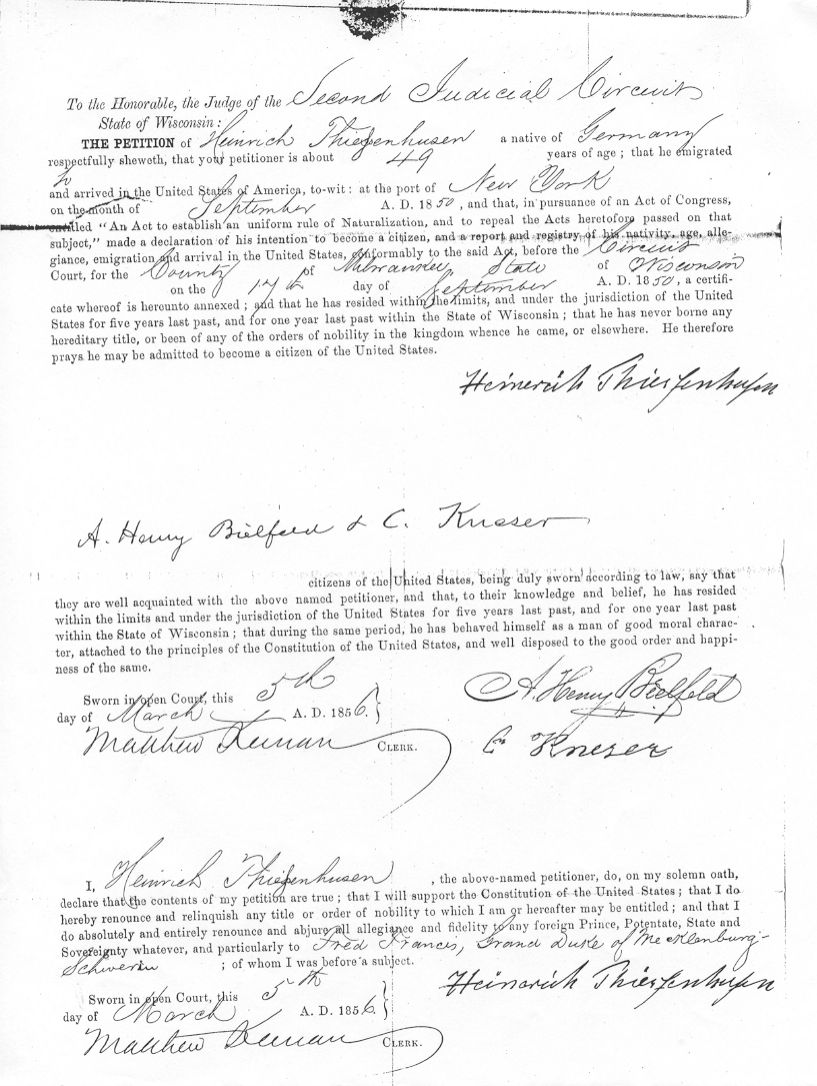 To the Honorable, the Judge of the Second Judicial Circuit
State of Wisconsin:
THE PETITION of Heinrich Thiessenhusen a native of Germany
respectfully sheweth, that your petitioner is about 49 years of age; that he emigrated
and arrived in the United States of America, to-wit: at the port of New York
on the month of September A. D. 1850, and that, in pursuance of an Act of Congress,
entitled "An Act to establish an uniform rule of Naturalization, and to repeal the Acts heretofore passed on that
subject," made a declaration of his intention to become a citizen, and a report and registry of his nativity, age, alle-
giance, emigration and arrival in the United States, conformably to the said Act, before the Circuit
Court, for the County of Milwaukee, State of Wisconsin
on the 17th day of September A. D. 1850, a certifi-
cate whereof is hereunto annexed; and that he has resided within the limits, and under the jurisdiction of the United
States for five years last past, and for one year last past within the State of Wisconsin; that he has never borne any
hereditary title, or been of any of the orders of nobility in the kingdom whence he came, or elsewhere. He therefore
prays he may be admitted to become a citizen of the United States.
Heinerich Thiessenhusen
A. Henry Bielfeld & C. Kneser
citizens of the United States, being duly sworn according to law, say that
they are well acquainted with the above named petitioner, and that, to their knowledge and belief, he has resided
within the limits and under the jurisdiction of the United States for five years last past, and for one year last past
within the State of Wisconsin; that during the same period, he has behaved himself as a man of good moral charac-
ter, attached to the principles of the Constitution of the United States, and well disposed to the good order and happi-
ness of the same.
Sworn in open Court, this 5th
day of March A. D. 1856.
A. Henry Bielfeld
Matthew Keenan CLERK.
C Kneser
I, Heinrich Thiessenhusen, the above-named petitioner, do, on my solemn oath,
declare that the contents of my petition are true; that I will support the Constitution of the United States; that I do
hereby renounce and relinquish any title or order of nobility to which I am or hereafter may be entitled; and that I
do absolutely and entirely renounce and abjure all allegiance and fidelity to any foreign Prince, Potentate, State and
Sovereignty whatever, and particularly to Fred Francis, Grand Duke of Mecklenburg-
Schwerin; of whom I was before a subject.
Heinerich Thiessenhusen
Sworn in open Court, this 5th
day of March A. D. 1856.
Matthew Keenan CLERK.